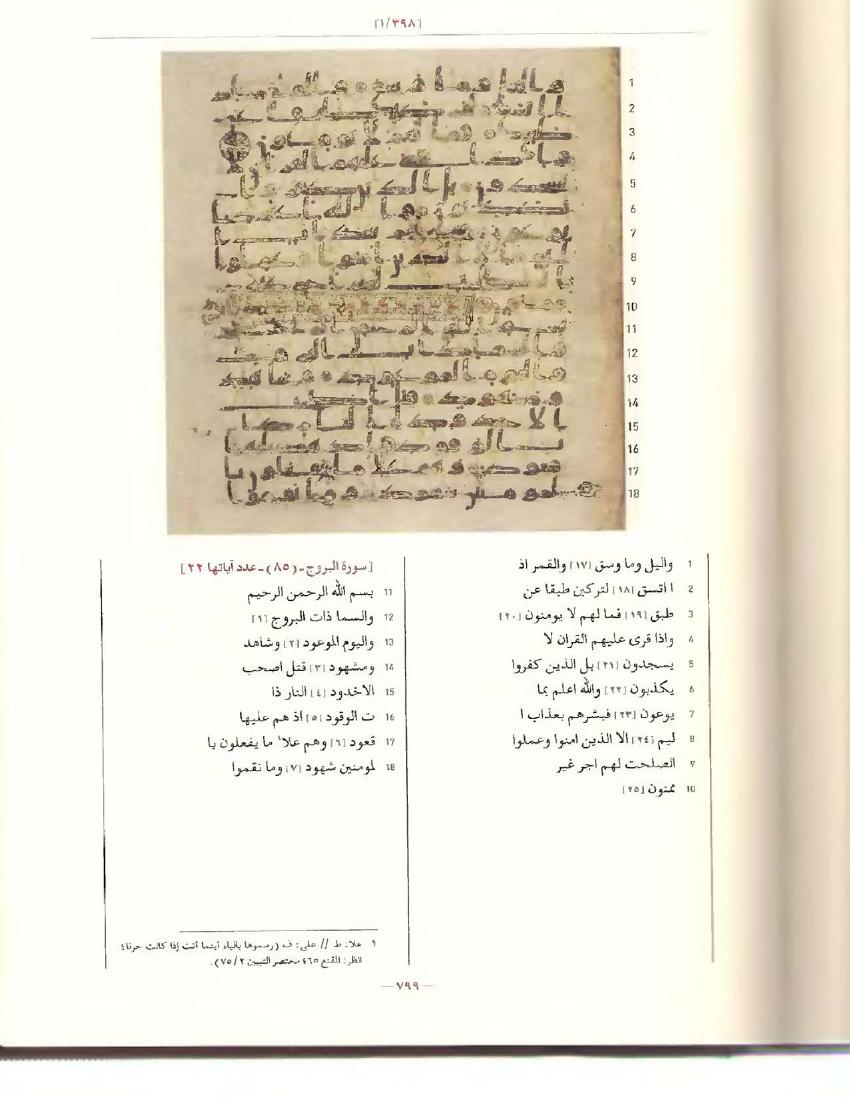 [٣٩٨/أ]
1
2
3
4
5
6
7
8
9
10
11
12
13
14
15
16
17
18
1 واليل وما وسق [١٧] والقمر اذ
2 ا اتسق [١٨] لتركبن طبقا عن
3 طبق [١٩] فما لهم لا يومنون [٢٠]
4 واذا قرى عليهم القران لا
5 يسجدون [٢١] بل الذين كفروا
6 يكذبون [٢٢] والله اعلم بما
7 يوعون [٢٣] فبشرهم بعذاب ا
8 ليم [٢٤] الا الذين امنوا وعملوا
9 الصلحت لهم اجر غير
10 ممنون [٢٥]
[سورة البروج-(٨٥)-عدد آياتها ٢٢]
11 بسم الله الرحمن الرحيم
12 والسما ذات البروج [١]
13 واليوم الموعود [٢] وشاهد
14 ومشهود [٣] قتل اصحب
15 الاخدود [٤] النار ذا
16 ت الوقود [٥] اذ هم عليها
17 قعود [٦] وهم علا١ ما يفعلون با
18 لمومنين شهود [٧] وما نقموا
١ علا: ط // على: ف (رسموها بالياء أينما أتت إذا كانت حرفا؛
انظر: المقنع ٤٦٥ مختصر التبيين ٢/ ٧٥).
—٧٩٩—